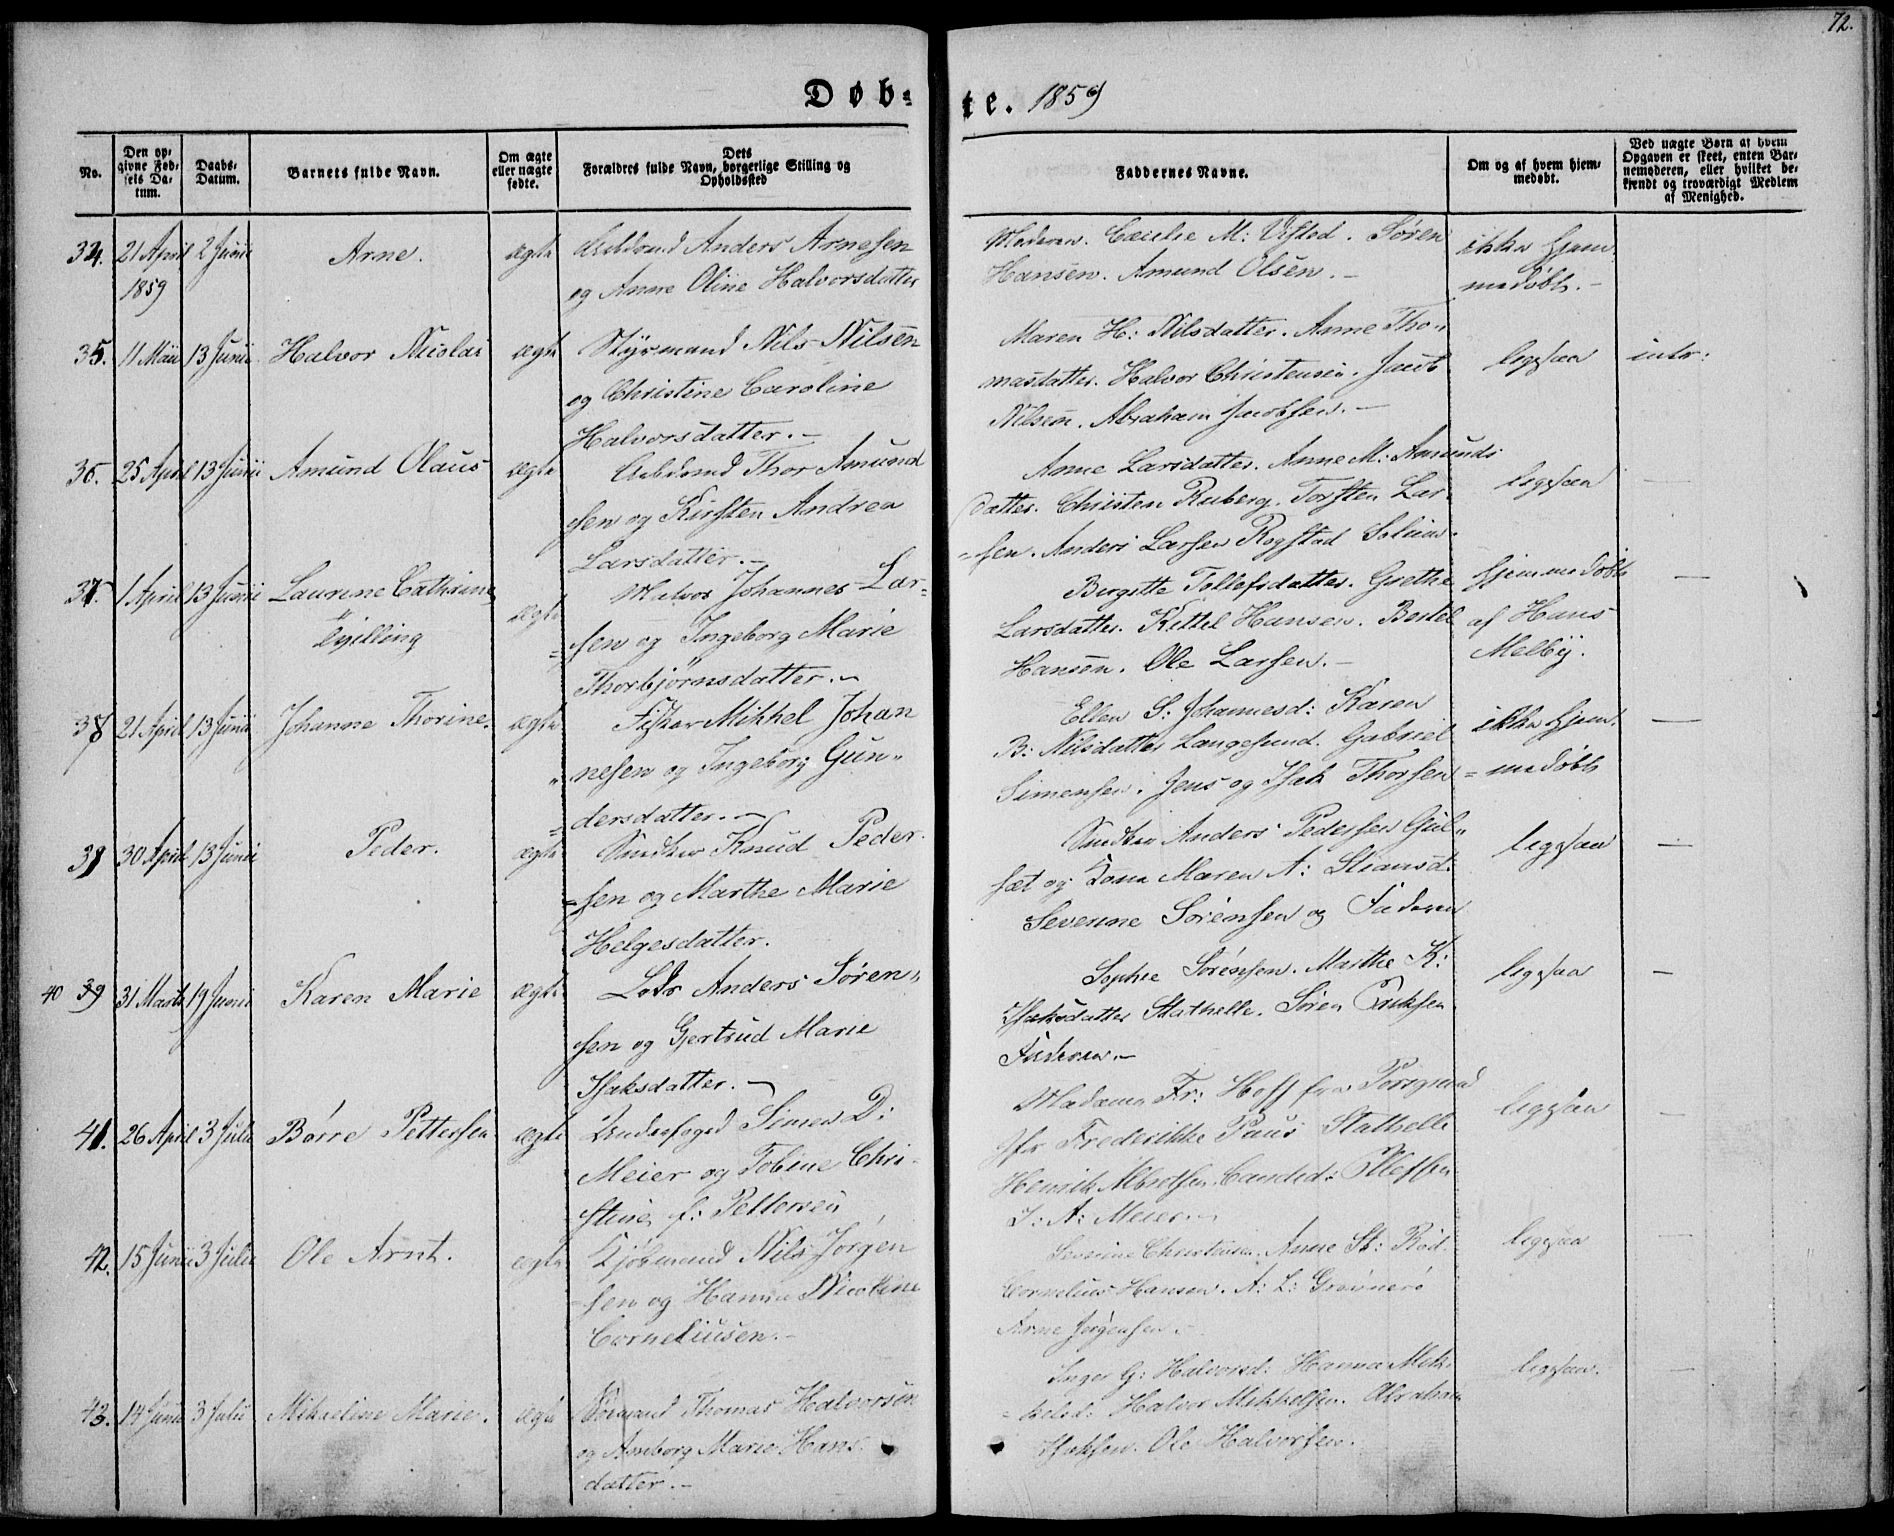 72.
Døb-
te. 1859
No.
Den op-
givne Fød-
sels Da-
tum.
Daabs-
Datum.
Barnets fulde Navn.
Om ægte
eller uægte
fødte.
Dets
Forældres fulde Navn, borgerlige Stilling og
Opholdssted
Faddernes Navne.
Om og af hvem hjem-
medøbt.
Ved uægte Børn af hvem
Opgaven er skeet, enten Bar-
nemoderen, eller hvilket be-
kjendt og troværdigt Medlem
af Menighed.
34. 21 April 2 Junii Arne. ægte Anders Arnesen
1859 og Anne Oline Halvorsdatter
Moderen. Cæcilie M: Søren
Hansen. Amund Olsen. –
ikke hjem
medøbt. –
35. 11 Maii 13 Junii Halvor Nicolai ægte Styrmand Nils Nilsen
og Christine Caroline
Halvorsdatter. –
Maren H: Nilsdatter. Anne Tho-
masdatter. Halvor Christensen. Jacob
Nilsen. Abraham Jacobsen. –
ligesaa
36. 25 April 13 Junii Amund Olaus ægte Thor Amund
sen og Kirsten Andrea
Larsdatter. –
Anne Larsdatter. Anne M: Amunds
datter. Christen Torsten Lar-
sen. Anders Larsen Rogstad
ligesaa –
37. 1 April 13 Junii Laurine Cathrine
Tvilling
ægte Matros Johannes Lar-
sen og Ingeborg Marie
Thorbjørnsdatter. –
Birgitte Tollefsdatter. Grethe
Larsdatter. Kittel Hansen. Bertel
Hansen. Ole Larsen. –
Hjemmedøbt
af Hans
Melby.
–
38 21 April 13 Junii Johanne Thorine. ægte Fisker Mikkel Johan
nesen og Ingeborg Gun-
dersdatter. –
Ellen S: Johannesd: Karen
B: Nilsdatter Langesund. Gabriel
Simensen. Jens og Isak Thorsen
ikke hjem
medøbt
–
39 30 April 13 Junii Peder. ægte Snedker Knud Peder
sen og Marthe Marie
Helgesdatter.
Snedker Anders Pedersen
og Kone Maren A:
Severine Sørensen og Faderen
ligesaa –
40 39 31 Marts 19 Junii Karen Marie ægte Lods Anders Søren-
sen og Gjertrud Marie
Isaksdatter. –
Sophie Sørensen. Marthe K:
Isaksdatter Stathelle. Søren
Faderen. –
ligesaa –
41. 26 April 3 Julii Børre Pettersen ægte Underfoged Simen D:
Meier og Tobine Chri-
stine f: Pettersen
Madame Fr: Hoff fra Porsgrund
Jfr Frederikke Paus Stathelle
Henrik
J: A: Meier –
ligesaa –
42. 15 Junii 3 Julii Ole Arnt. ægte Kjøbmand Nils Jørgen
sen og Hanna Nicoline
Corneliusen. –
Severine Christensen. Anne
Cornelius Hansen. A: L:
Arne Jørgensen. –
ligesaa –
43. 14 Junii 3 Julii Mikaeline Marie. ægte Thomas Halvorsen
og Anborg Marie Hans
datter. –
Inger G: Halvorsd: Hanna Mik-
kelsd: Halvor Mikkelsen. Abraham
Isaksen. Ole Halvorsen.
ligesaa. –